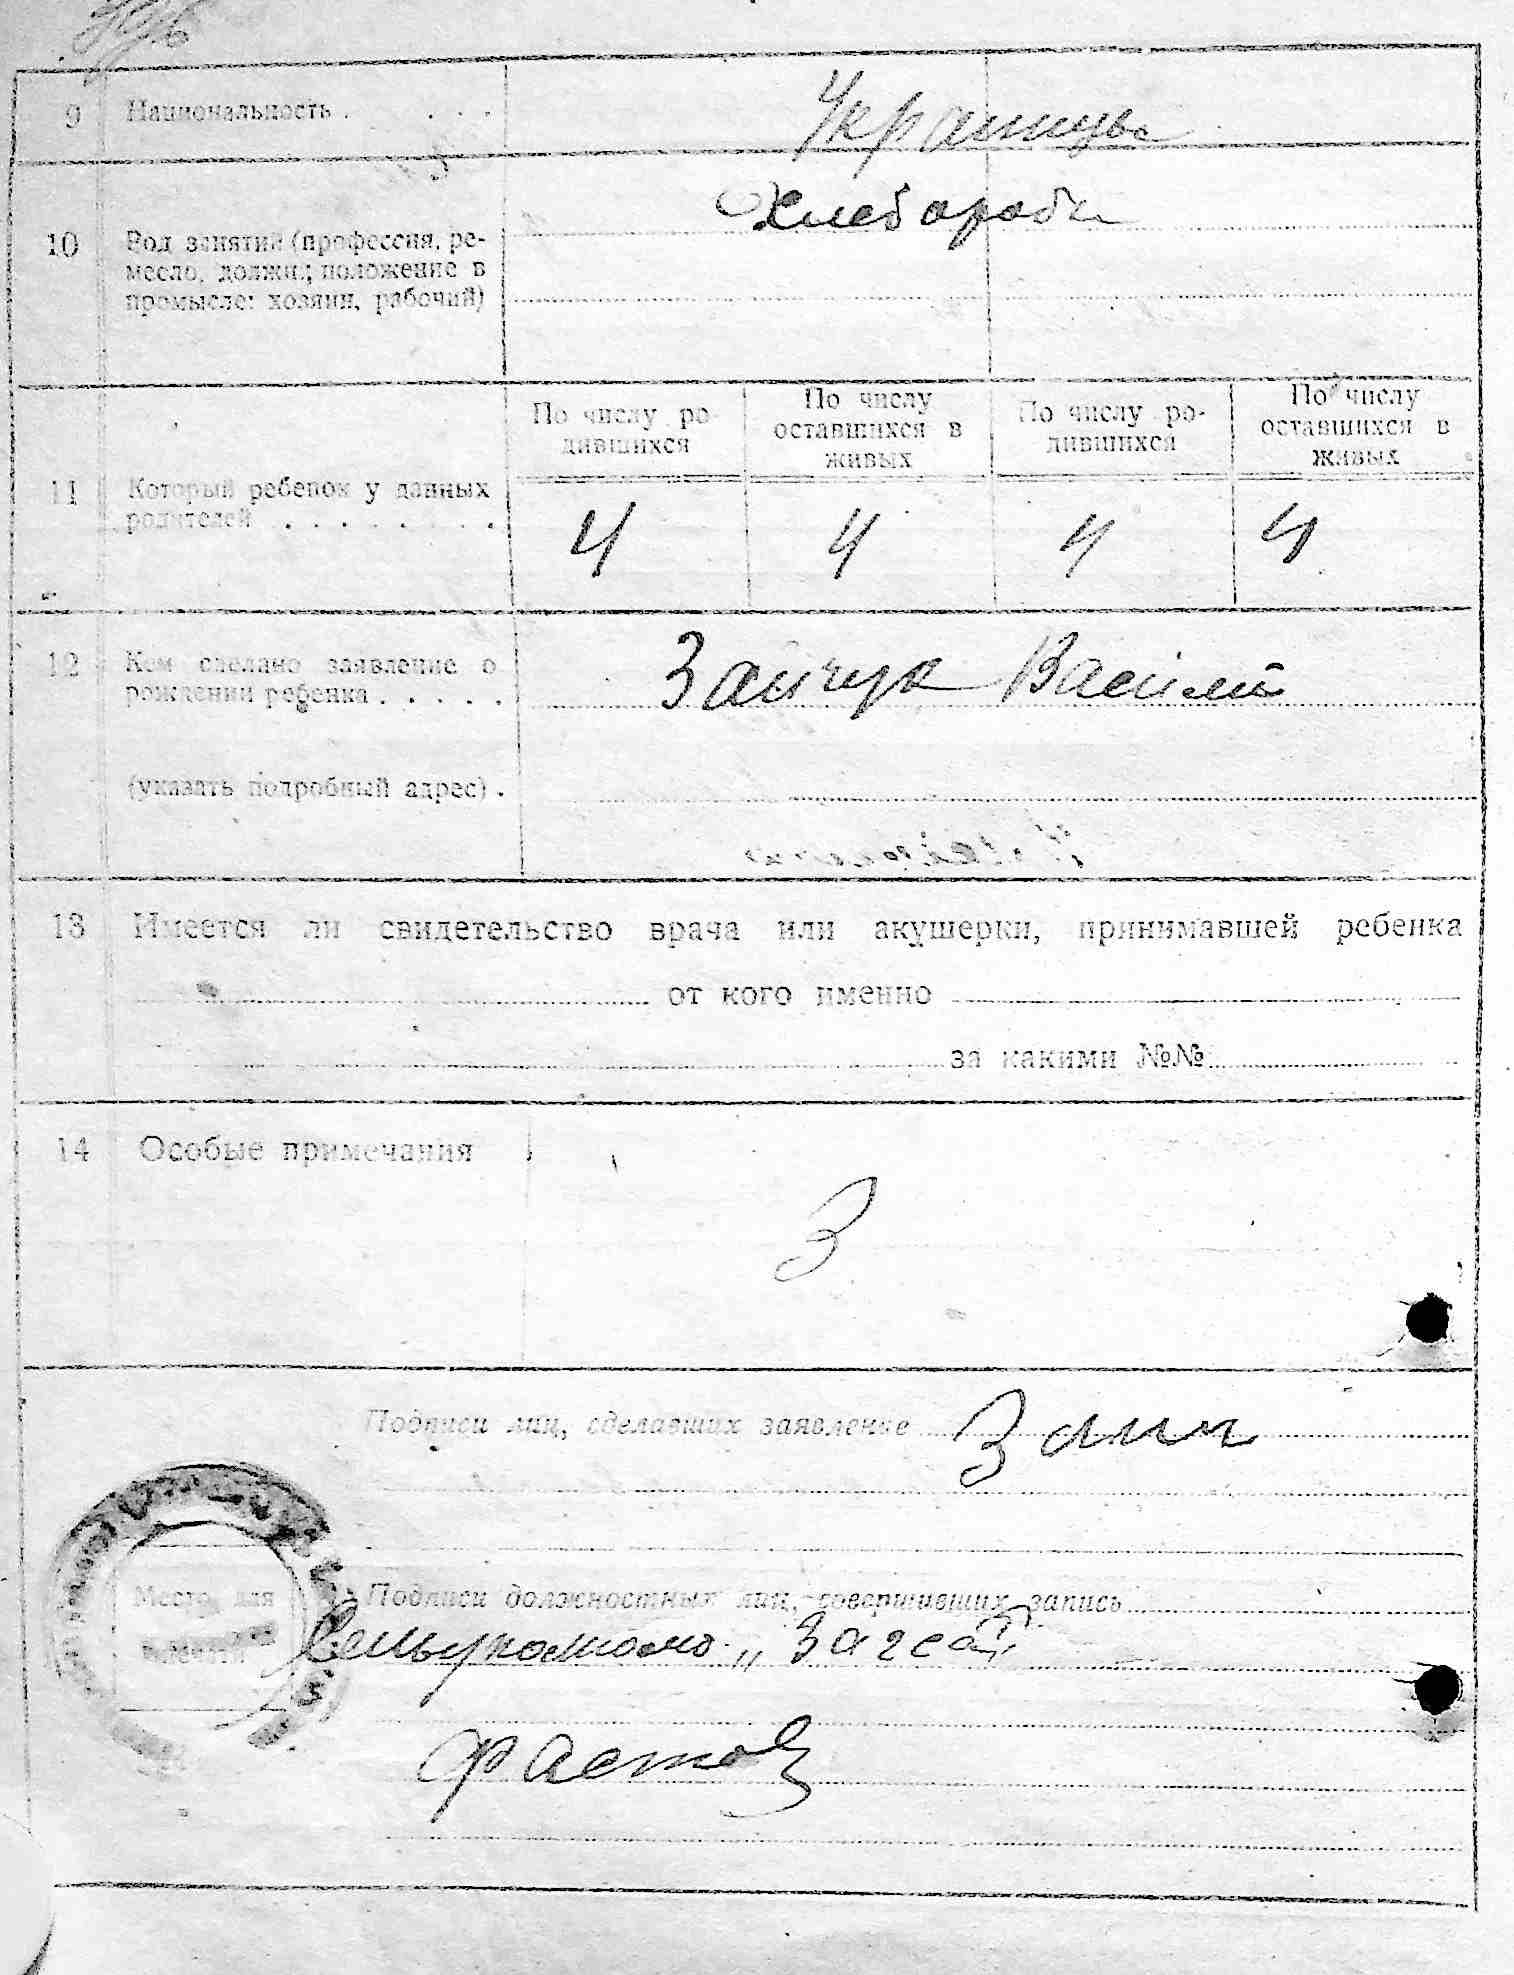 9 Национальность . . . . Украинцы
хлебороби
10 Род занятий (профессия, ре-
месло, должн.; положение в
промысле: хозяин, рабочий)
По числу ро-
дившихся
По числу
оставшихся в
живых
По числу ро-
дившихся
По числу
оставшихся в
живых
11 Который ребенок у данных
родителей . . . . . . . .
4 4 4 4
12 Кем сделано заявление о
рождении ребенка . . . . . Зайчук Василий
(указать подробный адрес) .
13 Имеется ли свидетельство врача или акушерки, принимавшей ребенка
от кого именно
за какими №№
14 Особые примечания
З
Подписи лиц, сделавших заявление Зайч
Место для
печати
Подписи должностных лиц, совершивших запись